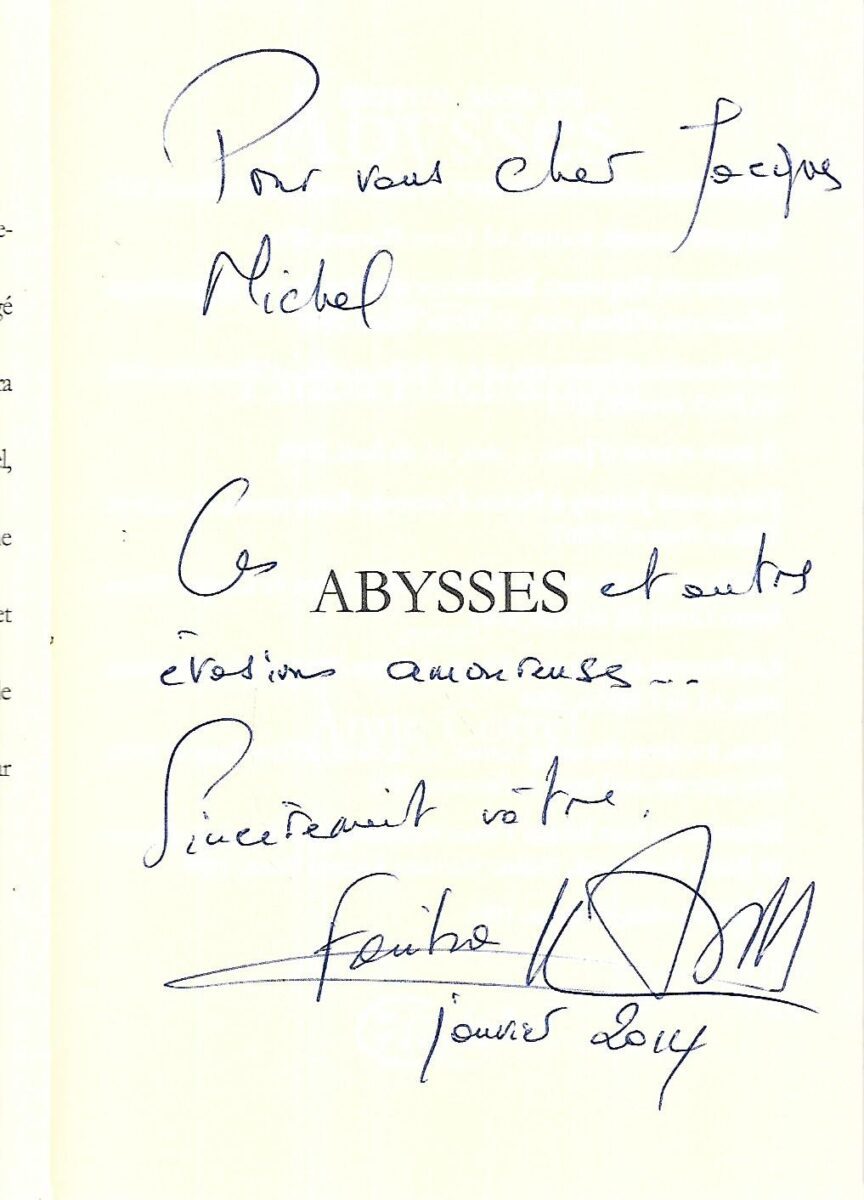 Pour vous cher Jacques
Michel
Ces ABYSSES et autres
évasions amoureuses...
Sincèrement vôtre.
janvier 2014
e-
gé
ra
el,
ne
et
le
ur